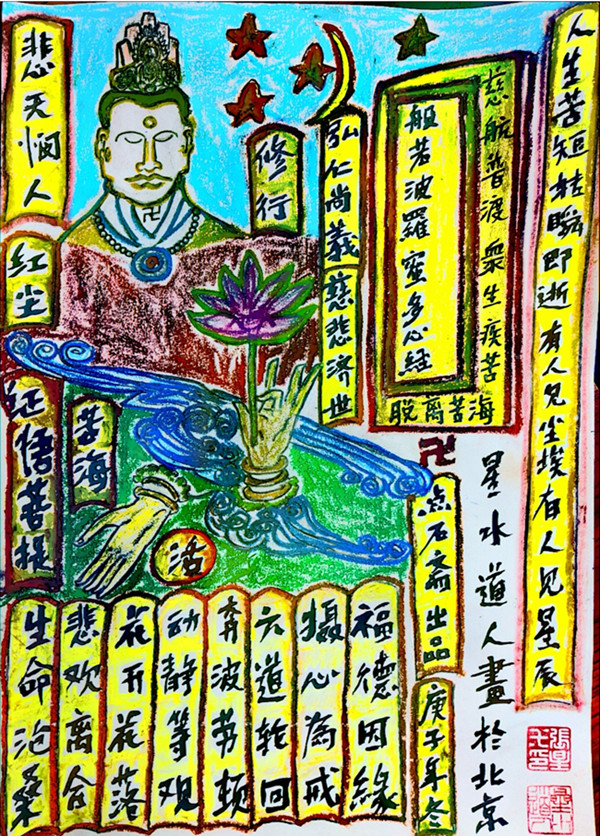 人生苦短瞬即逝有人见尘埃有人见星辰
慈航普渡眾生疾苦
般若波羅蜜多心经
脱离苦海
弘仁尚義慈悲济世
修行
悲天悯人
红尘
证悟菩提
苦海
活
卍
卍
星水道人畫於北京
点石斋出品
庚子年冬
福德因緣
摄心為戒
六道轮回
奔波劳顿
动静等观
花开花落
悲欢离合
生命沧桑